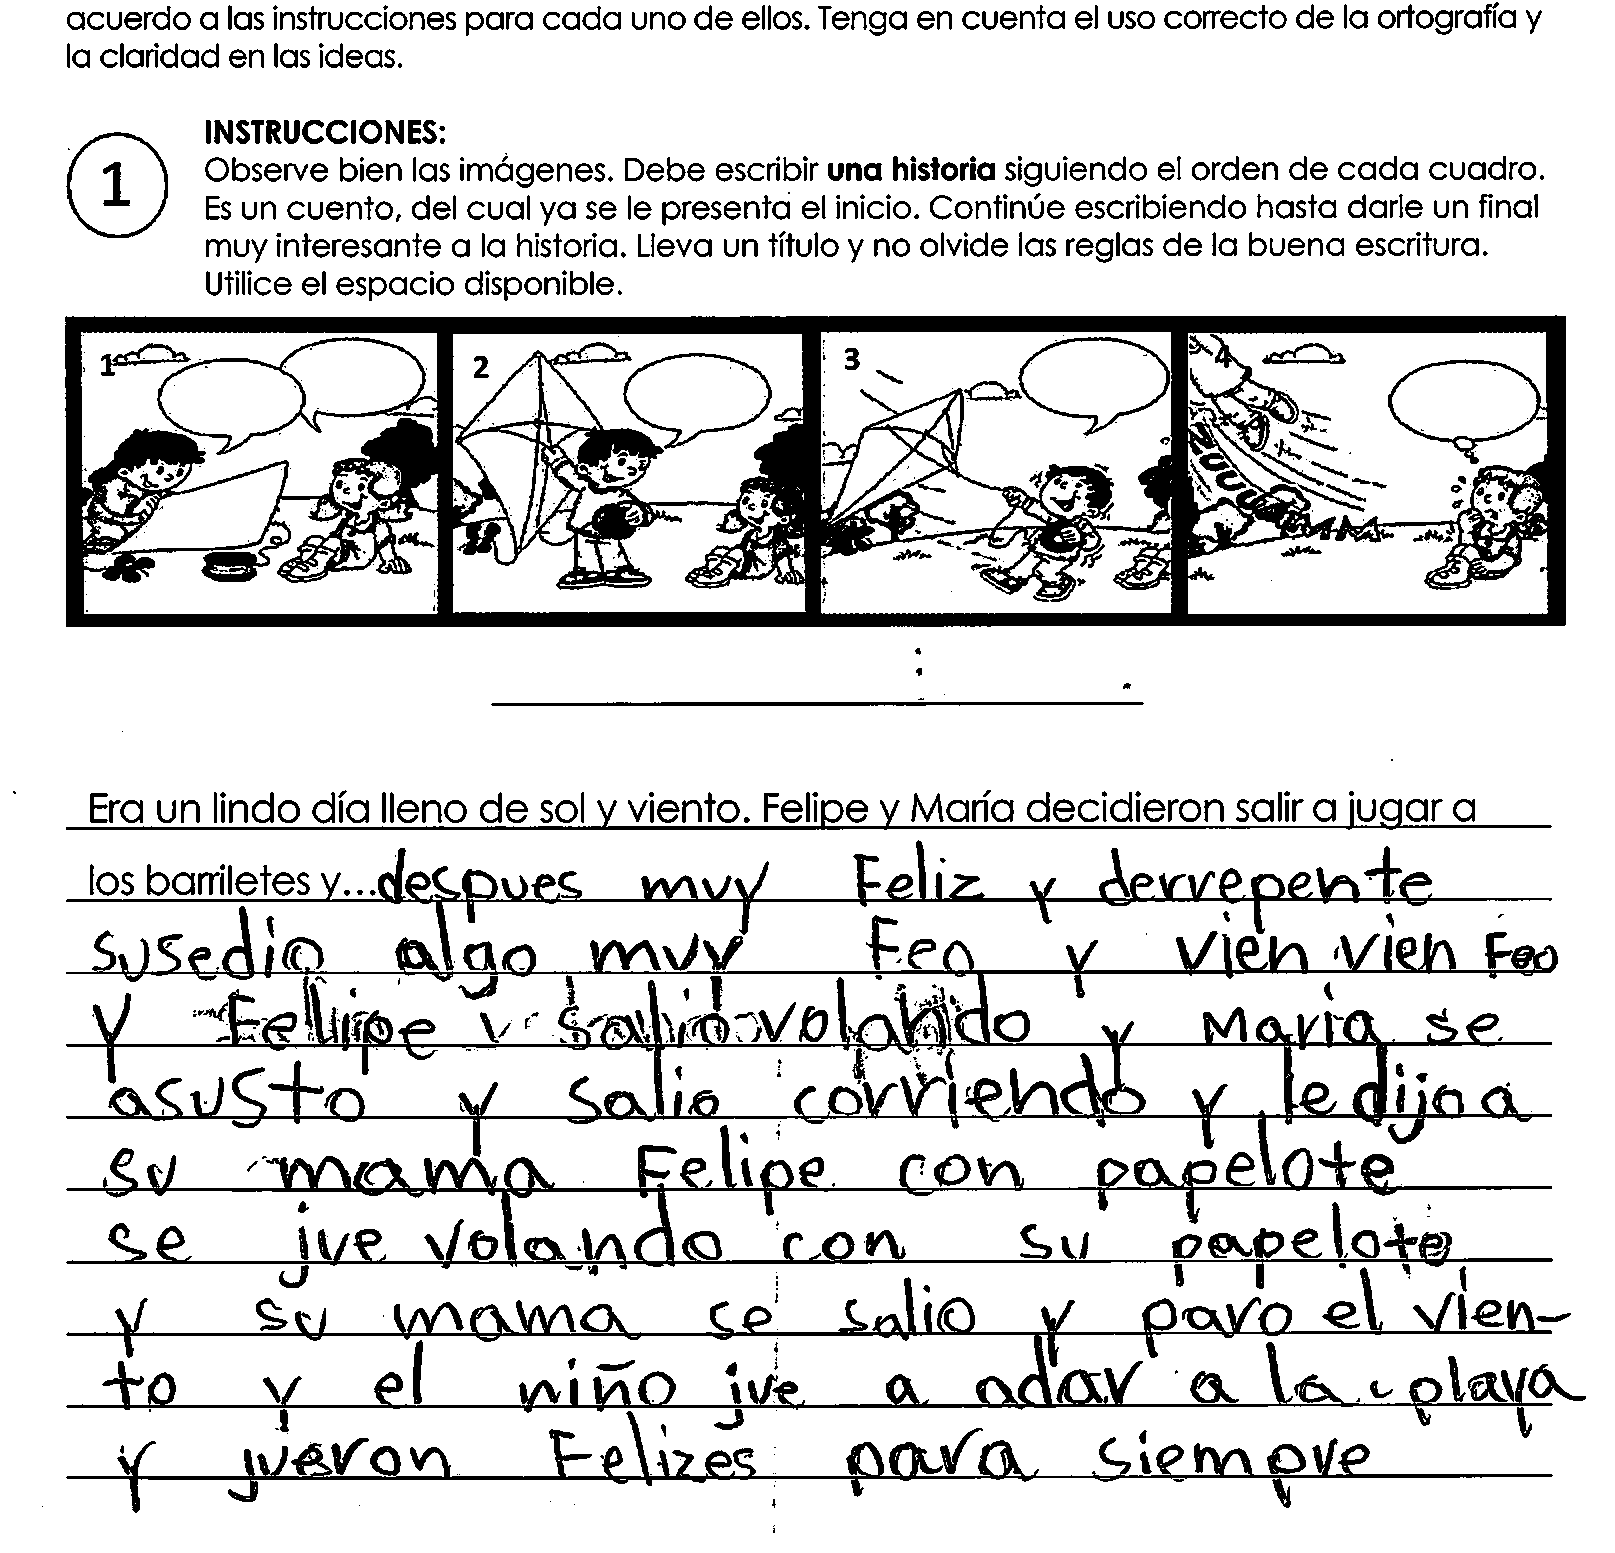 acuerdo a las instrucciones para cada uno de ellos. Tenga en cuenta el uso correcto de la ortografía y
la claridad en las ideas.
1
INSTRUCCIONES:
Observe bien las imágenes. Debe escribir una historia siguiendo el orden de cada cuadro.
Es un cuento, del cual ya se le presenta el inicio. Continúe escribiendo hasta darle un final
muy interesante a la historia. Lleva un título y no olvide las reglas de la buena escritura.
Utilice el espacio disponible.
1 2 3 4
ZUUUUMMM
Era un lindo día lleno de sol y viento. Felipe y María decidieron salir a jugar a
los barriletes y...despues muy Feliz y derrepente
susedio algo muy Feo y vien vien Feo
y Fellipe salio volando y María se
asusto y salio corriendo y le dijo a
su mama Felipe con papelote
se jue volando con su papelote
y su mama se salio y paro el vien-
to y el niño jue a adar a la playa
y jueron Felizes para siempre